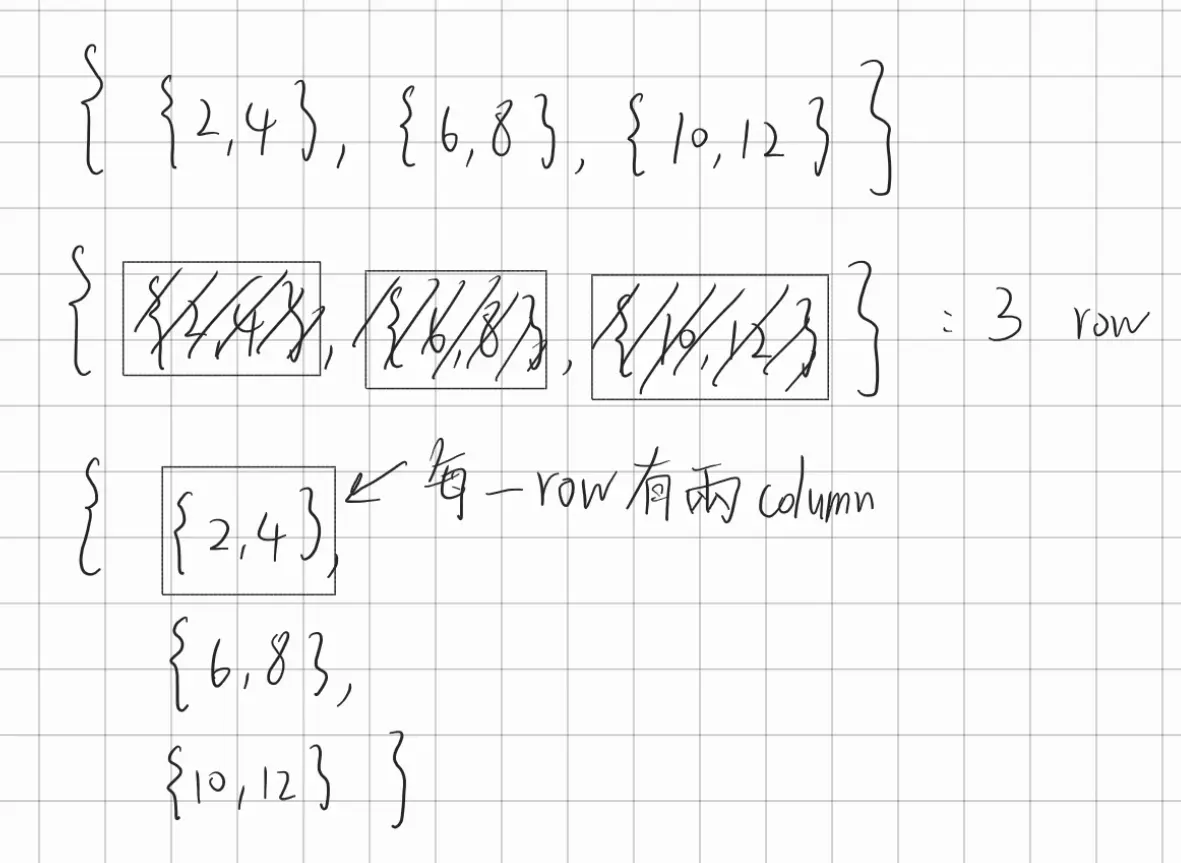 { {2,4}, {6,8}, {10,12} }
{ {2,4}, {6,8}, {10,12} } : 3 row
{ {2,4}, ← 每一row有兩column
{6,8},
{10,12} }